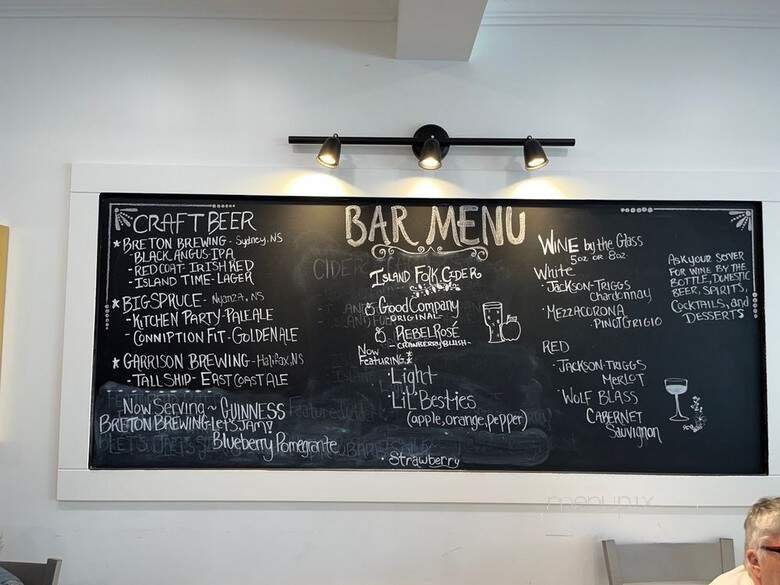 BAR MENU
CRAFT BEER
* BRETON BREWING - Sydney, NS
BLACK ANGUS - IPA
- RED COAT - IRISH RED
- ISLAND TIME - LAGER
* BIG SPRUCE - Nyanza, NS
- KITCHEN PARTY - PALE ALE
- CONNIPTION FIT - GOLDEN ALE
* GARRISON BREWING - Halifax, NS
- TALL SHIP - EAST COAST ALE
Now Serving ~ GUINNESS
BRETON BREWING - Let's Jam!
Blueberry Pomegrante
CIDER
ISLAND FOLK CIDER
Good Company
ORIGINAL
REBEL ROSÉ
- CRANBERRY BLUSH -
Now
FEATURING *
· Light
· Lil' Besties
(apple, orange, pepper)
· Strawberry
WINE by the Glass
5oz OR 8oz
White
· JACKSON-TRIGGS
Chardonnay
· MEZZACORONA
PINOT GRIGIO
RED
· JACKSON-TRIGGS
MERLOT
· WOLF BLASS
CABERNET
Sauvignon
ASK YOUR SERVER
FOR WINE BY THE
BOTTLE, DOMESTIC
BEER, SPIRITS,
COCKTAILS, and
DESSERTS
menupix